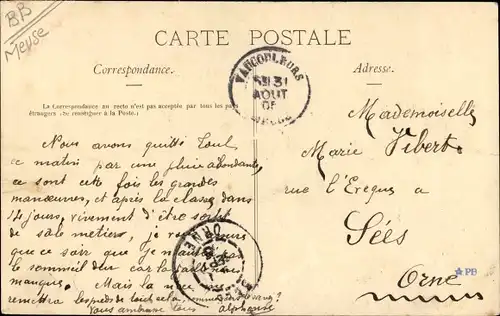 BB
Meuse
CARTE POSTALE
Correspondance.
Adresse.
La Correspondance au recto n'est pas acceptée par tous les pays
étrangers (Se renseigner à la Poste.)
VAUCOULEURS
31
AOUT
05
MEUSE
Mademoiselle
Marie Vibert
rue l'Evêque a
Sées
Orne
Nous avons quitté Toul
ce matin par une pluie abondante,
ce sont cette fois les grandes
manœuvres, et après la classe dans
14 jours, vivement d'être sorti
de sale métier, je
que ce soir que je
le sommeil car la
manque. Mais la
remettra les pieds de tout cela,
Vous embrasse tous Alphonse
ORNE
PB